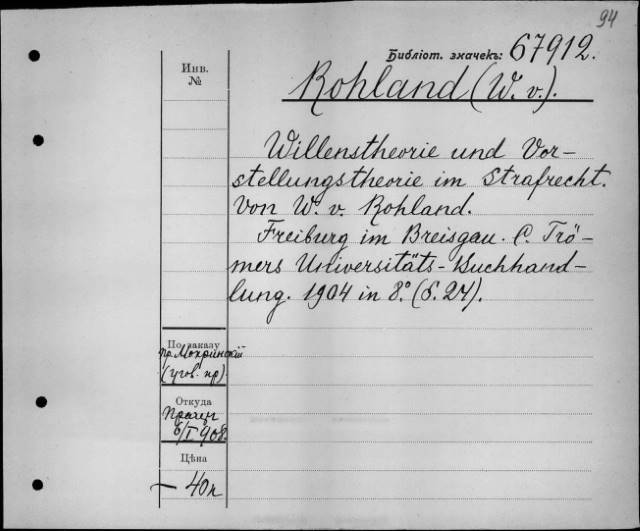 94
Библіот. значекъ: 67912.
Инв.
№
Rohland (W. v.).
Willenstheorie und Vor-
stellungstheorie im Strafrecht.
Von W. v. Rohland.
Freiburg im Breisgau. C. Trö-
mers Universitäts-Buchhand-
lung. 1904 in 8.° (S. 24).
По заказу
пр. Мокринскій
(угол. пр)
Откуда
6/I 908.
Цѣна
— 40 к